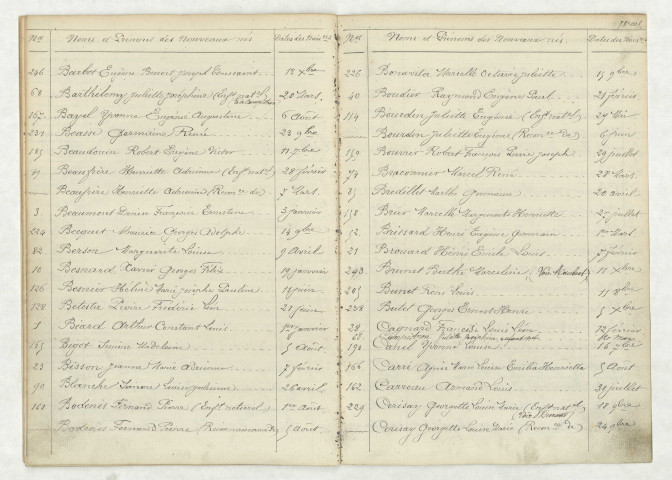 Nos Noms et Prénoms des Nouveaux nés Dates des Naiss.ces
246 Barbot Eugène Benoit Joseph Toussaint 18 Xbre
68 Barthélemy Juliette Joséphine (Enft natel) 20 Mars
157 Bazel Yvonne Eugénie Augustine 6 Août
231 Beasse Germaine Renée 23 9bre
185 Beaudouin Robert Eugène Victor 11 7bre
49 Beaufrère Henriette Adrienne (Enft natel) 28 février
Beaufrère Henriette Adrienne (Recon.ce de) 7 Mars
3 Beaumont Denise Françoise Ernestine 3 janvier
224 Becquet Maurice Georges Adolphe 14 9bre
82 Berson Marguerite Louise 9 Avril
10 Besnard Xavier Georges Félix 10 janvier
126 Besnier Hélène Marie Josèphe Pauline 11 juin
128 Beleste Pierre Frédéric Léon 21 juin
1 Béard Arthur Constant Louis 1er janvier
155 Bigot Simone Madeleine 5 Août
23 Bisson Jeanne Marie Adrienne 7 février
90 Blanche Simone Louise 26 avril
161 Bodenès Fernand Pierre (Enft naturel) 1er Août
Bodenès Fernand Pierre (Reconnaissance de) 5 Août
Nos Noms et Prénoms des Nouveaux nés Dates des Naiss.ces
226 Bonavita Marcelle Octavie Juliette 15 9bre
40 Boudier Raymond Eugène Paul 21 février
114 Bourdon Juliette Eugénie (Enft natel) 24 Mai
Bourdon Juliette Eugénie (Recon.ce de) 6 juin
159 Bouvier Robert François Pierre Joseph 29 juillet
74 Braconnier Marcel René 28 Mars
85 Bredillet Marthe Germaine 20 avril
158 Breux Marcelle Marguerite Henriette 25 juillet
52 Brissard Henri Eugène Germain 1er Mars
21 Brouard Henri Emile Louis 7 février
243 Brunet Berthe Marceline 11 Xbre
205 Brunet René Louis 15 8bre
238 Bulet Georges Ernest Marie 5 Xbre
28 Cagnard François Louis Léon 12 février
68 Campistron Juliette Joséphine
190 Canel Yvonne Louise 16 7bre
166 Carré Agnès Marie Louise Emilia Henriette 5 Août
162 Carreau Armand Louis 30 juillet
229 Cerisay Georgette Louise Marie (Enft natel) 18 9bre
Cerisay Georgette Louise Marie (Recon.ce de) 24 9bre